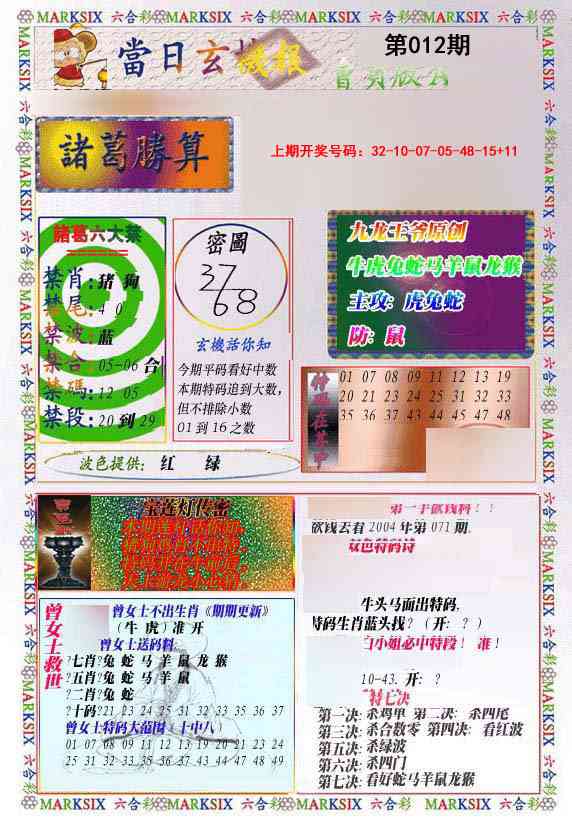 MARKSIX 六合彩 MARKSIX 六合彩 MARKSIX 六合彩 MARKSIX 六合彩
當日玄機報
第012期
諸葛勝算
上期开奖号码：32-10-07-05-48-15+11
諸葛六大禁
禁肖:猪 狗
禁尾:4 0
禁波:蓝
禁合:05-06 合
禁碼:12 05
禁段:20 到 29
密圖
37
68
玄機話你知
今期平码看好中数
本期特码追到大数,
但不排除小数
01 到 16 之数
九龙王爷原创
牛虎兔蛇马羊鼠龙猴
主攻: 虎兔蛇
防: 鼠
01 07 08 09 11 12 13 19
20 21 23 24 25 31 32 33
35 36 37 43 44 45 47 48
波色提供: 红 绿
宝莲灯传密
欲钱去看 2004 年第 071 期.
双色特码诗
牛头马面出特码,
特码生肖蓝头找? (开: ? )
白小姐必中特段! 准!
10-43. 开: ?
特七决
第一决: 杀鸡单 第二决: 杀四尾
第三决: 杀合数零 第四决: 看红波
第五决: 杀绿波
第六决: 杀四门
第七决: 看好蛇马羊鼠龙猴
曾女士救世
曾女士不出生肖《期期更新》
(牛 虎) 准 开
曾女士送码料
?七肖?兔 蛇 马 羊 鼠 龙 猴
?五肖?兔 蛇 马 羊 鼠
?二肖?兔 蛇
?十码?21 23 24 25 31 32 33 35 36 37
曾女士特码大范围 (十中八)
01 07 08 09 11 12 13 19 20 21 23 24
25 31 32 33 35 36 37 43 44 47 48 49
MARKSIX 六合彩 MARKSIX 六合彩 MARKSIX 六合彩 MARKSIX 六合彩